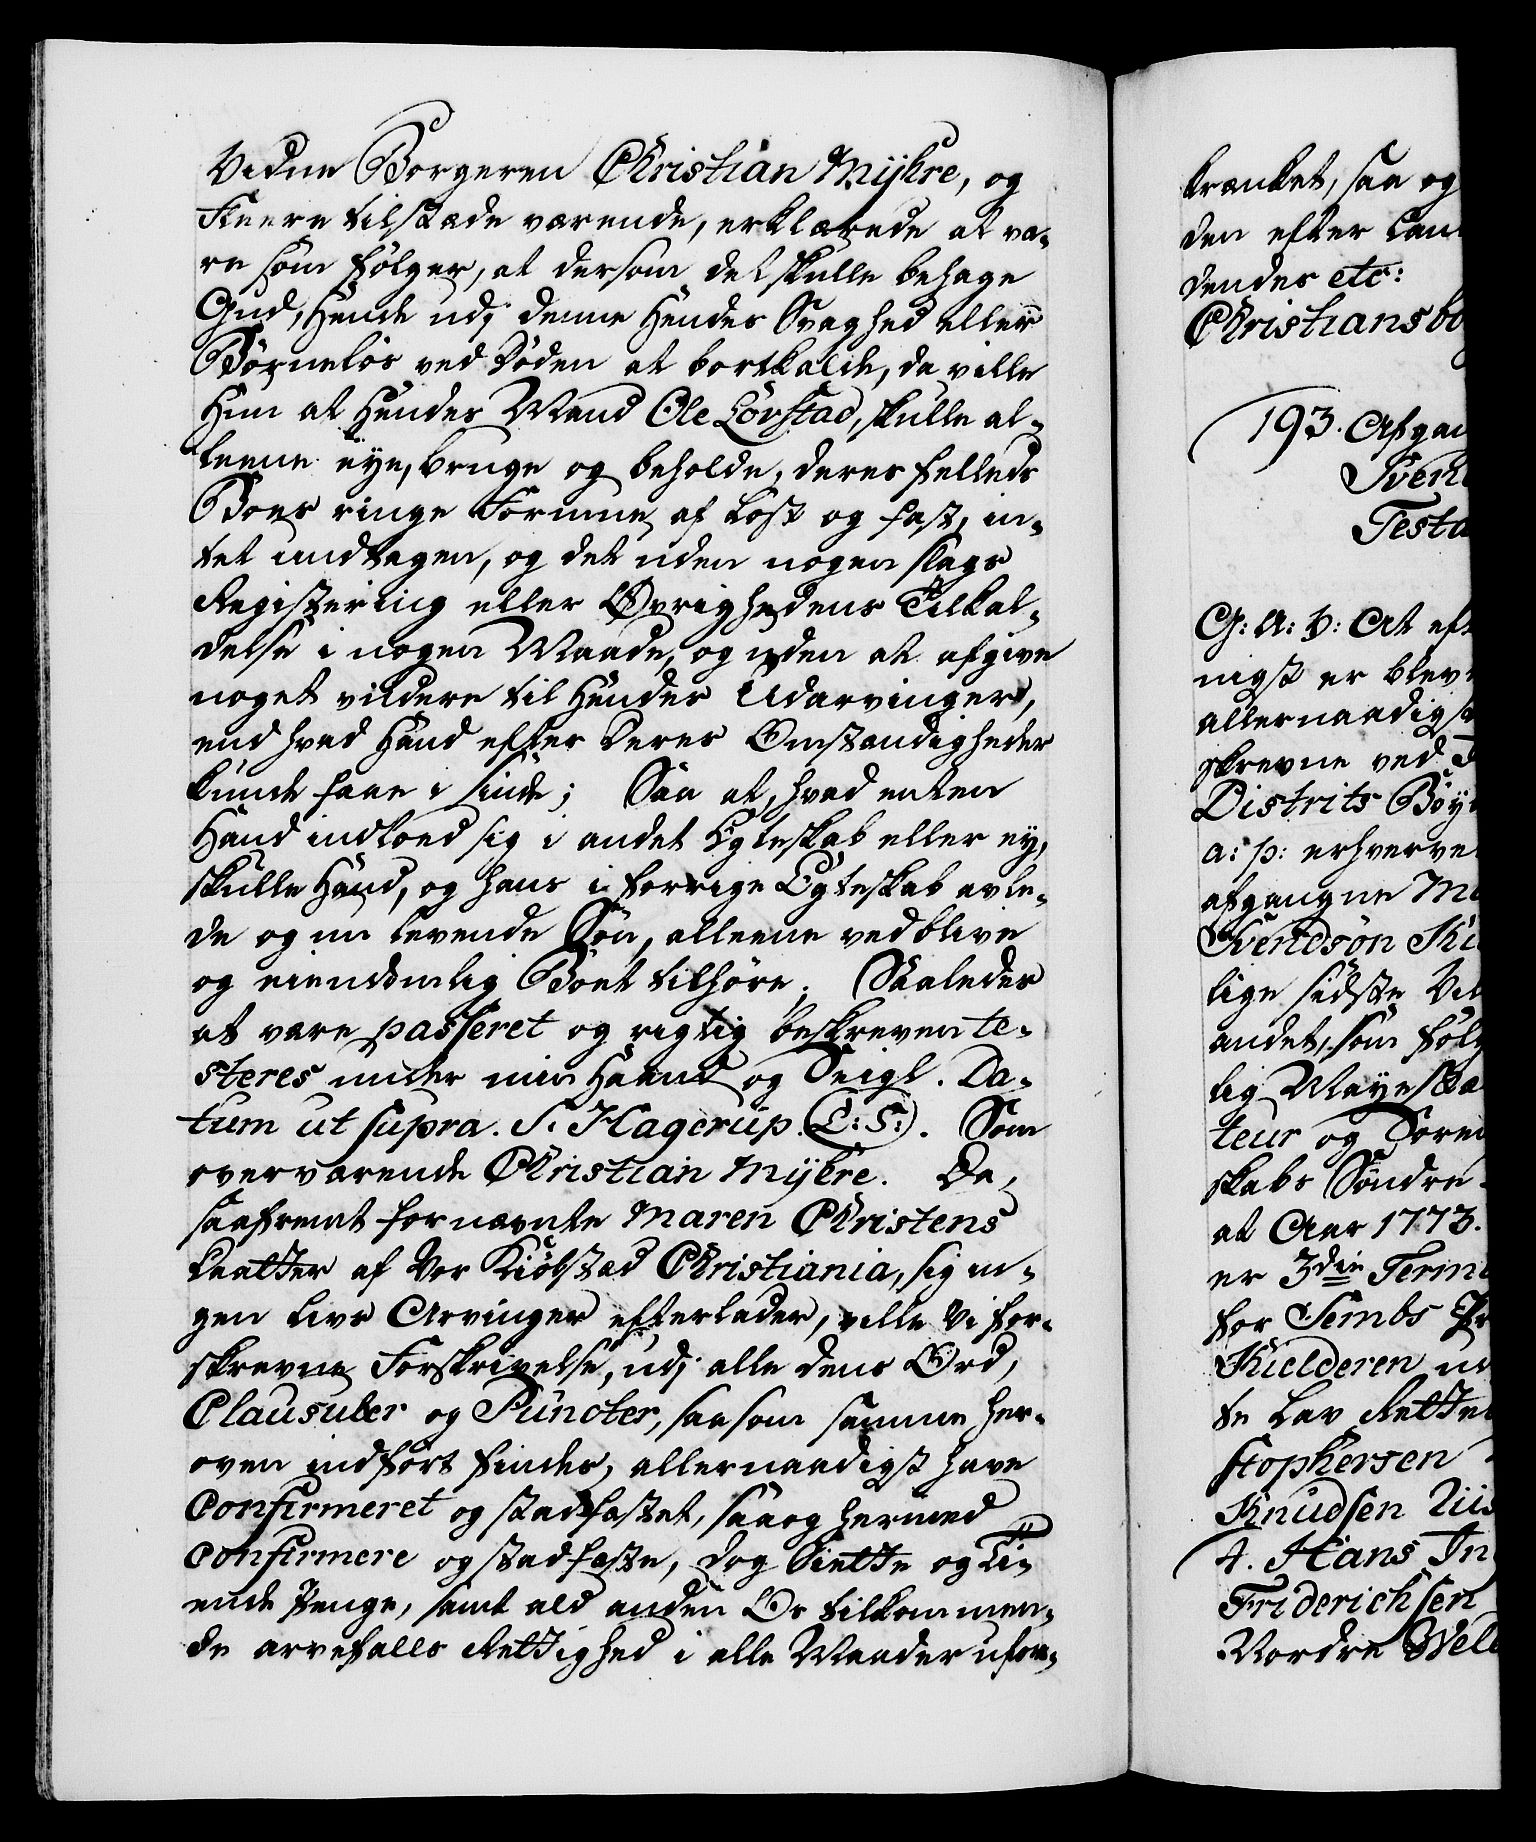 Vidne Borgeren Christian Mykre, og
Fleere tilstæde værende, erklærede at væ-
re som følger, at dersom det skulle behage
Gud, Hende udj denne Hendes Svaghed eller
Børneløs ved Døden at bortkalde, da ville
Hun at Hendes Mand Ole Lørstad, skulle al-
leene eye, bruge og beholde, deres fælleds
Boes ringe Formue af Løst og fast, in-
tet undtagen, og det uden nogen slags
Registering eller Øvrighedens Tilkal-
delse i nogen Maade, og uden at afgive
noget videre til Hendes Udarvinger,
end hvad Hand efter Deres Omstændigheder
kunde faae i sinde; Saa at, hvad enten
Hand indloed sig i andet Egteskab eller ey,
skulle Hand, og hans i forrige Egteskab avle-
de og nu levende Søn, alleene vedblive
og eiendomlig Boet tilhøre. Saaledes
at være passeret og rigtig beskreven te-
steres under min Haand og Seigl. Da-
tum ut supra. S. Hagerup. (L:S:). Som
overværende Christian Mykre. Da,
saafremt fornævnte Maren Christens
Daatter af Vor Kiøbstæd Christiania, sig in-
gen Livs Arvinger efterlader, ville Vi for-
skrevne Forskrivelse, udj alle dens Ord,
Clausuler og Puncter, saasom samme her-
oven indført findes, allernaadigst have
Confirmeret og stadfæstet, saa og hermed
confirmere og stadfæste, dog Siette og Ti-
ende Penge, samt ald anden Os tilkommen-
de arvefalls Rettighed i alle Maader ufor-
krænket, saa og
den efter
dendes etc:
Christiansbo
193. Afgan
Svend
Testa
G: A: V: At eft
nigst er blev
allernaadigst
skrevne ved
Distrits Bøy
a: p: erhverve
afgangne
Svendsøn
lige sidste Vil
andet, som følg
lig Mayestæ
teur og Soren
skabs Søndre
at Aar 1773.
er 3die Term
for Sembs
Kielderen
te Lav Rettes
stophersen
Knudsen
4. Hans
Friderichsen
Nordre